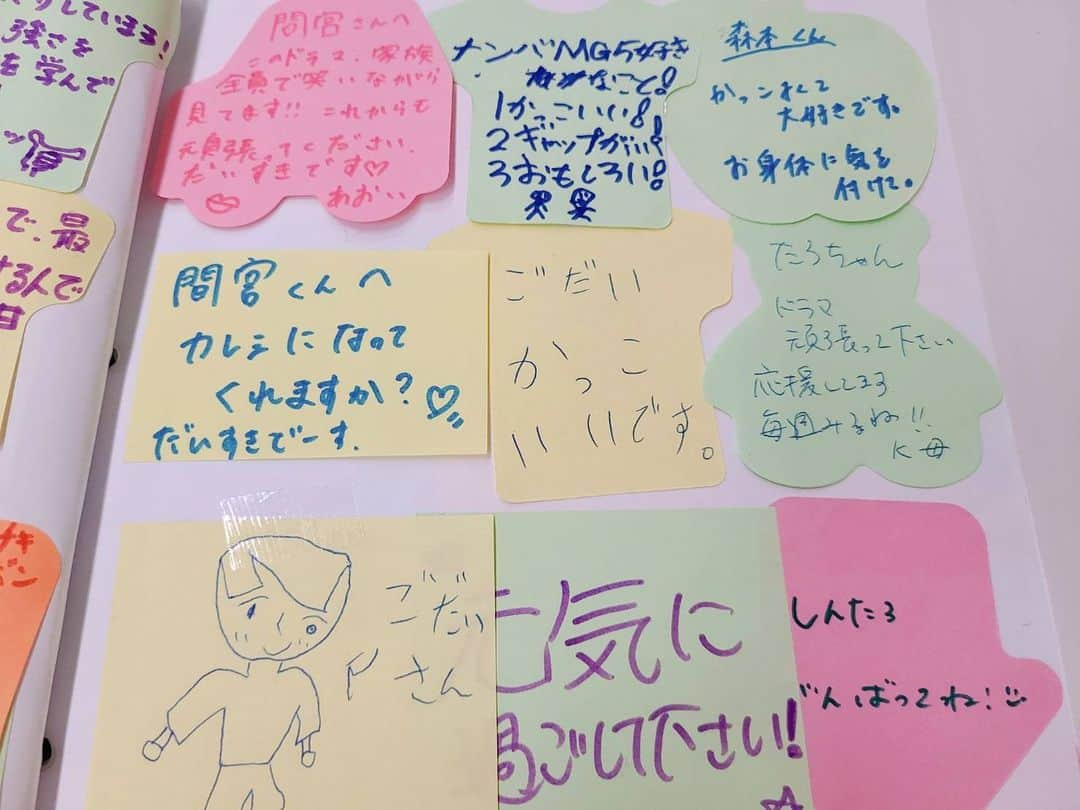 くりしている!
強さを
を学んで
間宮さんへ
このドラマ、家族
全員で笑いながら
見てます!! これからも
頑張ってください。
だいすきです♡
あおい
ナンバMG5好き
なこと!
1かっこいい!
2ギャップがいい!
3おもしろい!
森本くん
かっこよくて
大好きです。
お身体に気を
付けて。
で、最
する人で
間宮くんへ
カレシになって
くれますか?♡
だいすきでーす.
ごだい
かっこ
いいです。
たろちゃん
ドラマ
頑張って下さい
応援してます
毎週みるね!!
K母
ごだい
さん
元気に
過ごして下さい!
しんたろ
がんばってね!